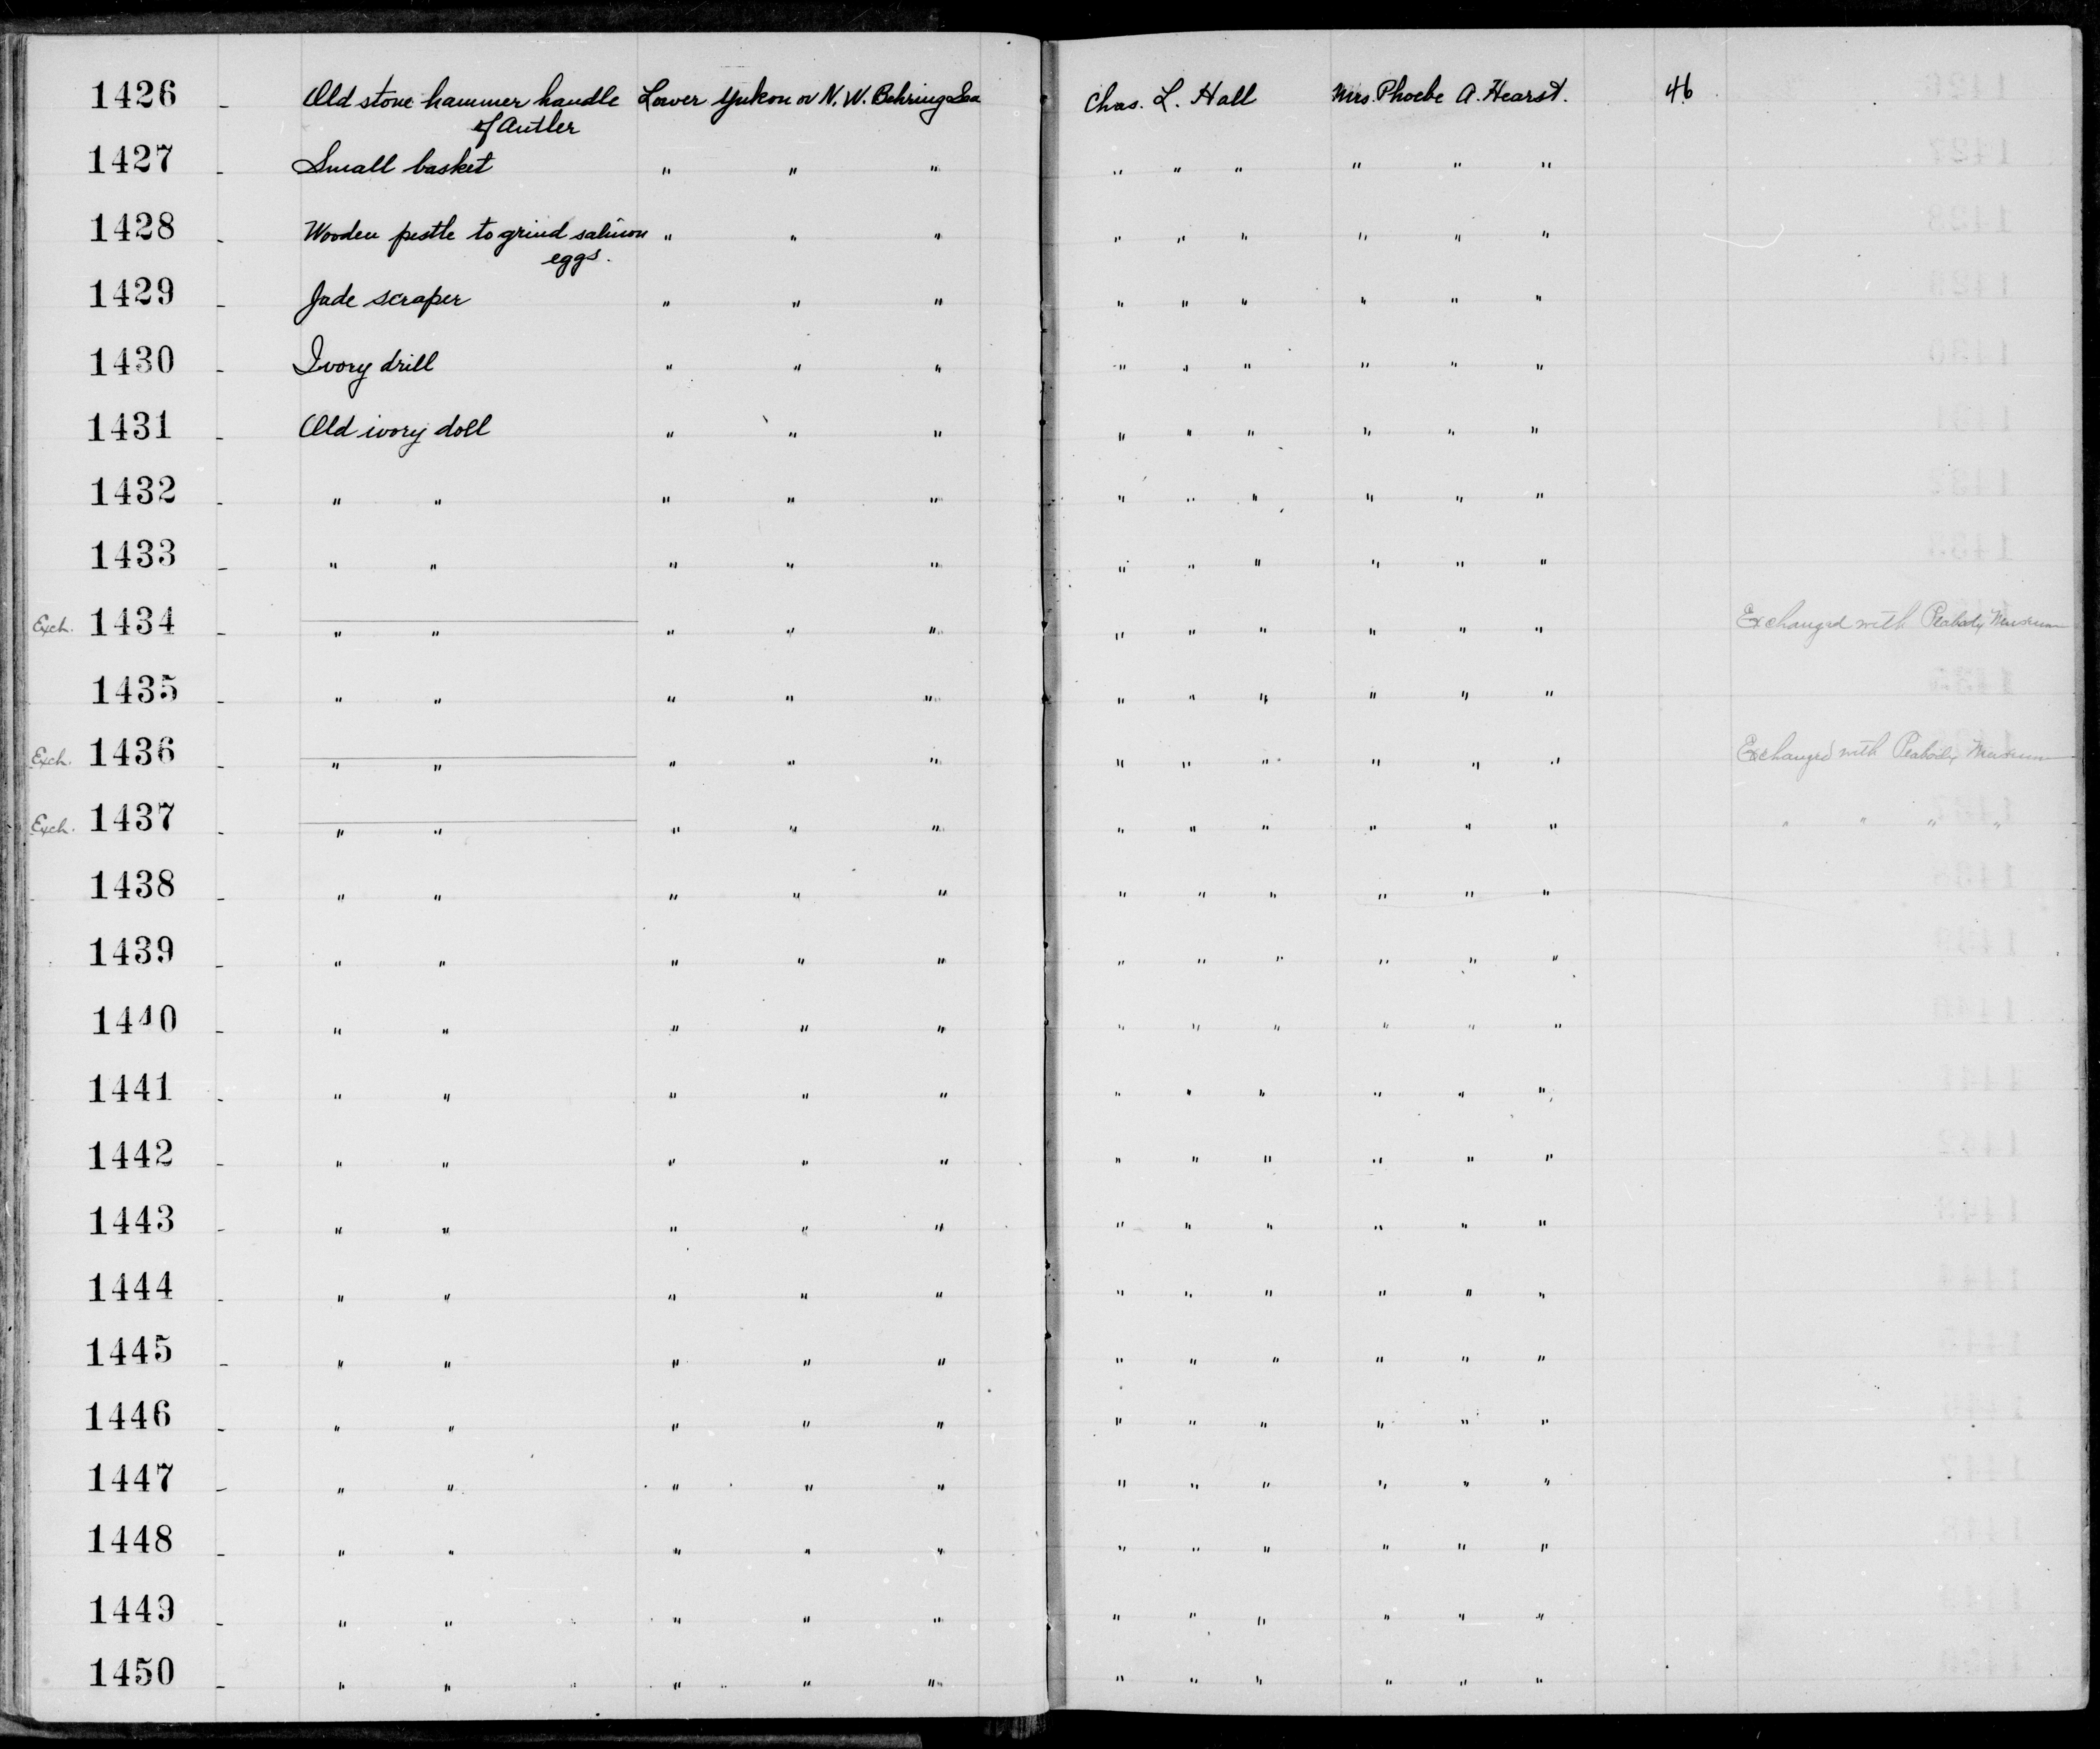 1426 - Old stone hammer handle Lower Yukon or N. W. Behring Sea Chas. L. Hall Mrs. Phoebe A. Hearst. 46
of Antler
1427 - Small basket " " " " " " " " "
1428 - Wooden pestle to grind salmon " " " " " " " " "
eggs.
1429 - Jade scraper " " " " " " " " "
1430 - Ivory drill " " " " " " " " "
1431 - Old ivory doll " " " " " " " " "
1432 - " " " " " " " " " " "
1433 - " " " " " " " " " " "
Exch. 1434 - " " " " " " " " " " " Exchanged with Peabody Museum
1435 - " " " " " " " " " " "
Exch. 1436 - " " " " " " " " " " " Exchanged with Peabody Museum
Exch. 1437 - " " " " " " " " " " " " " " "
1438 - " " " " " " " " " " "
1439 - " " " " " " " " " " "
1440 - " " " " " " " " " " "
1441 - " " " " " " " " " " "
1442 - " " " " " " " " " " "
1443 - " " " " " " " " " " "
1444 - " " " " " " " " " " "
1445 - " " " " " " " " " " "
1446 - " " " " " " " " " " "
1447 - " " " " " " " " " " "
1448 - " " " " " " " " " " "
1449 - " " " " " " " " " " "
1450 - " " " " " " " " " " "